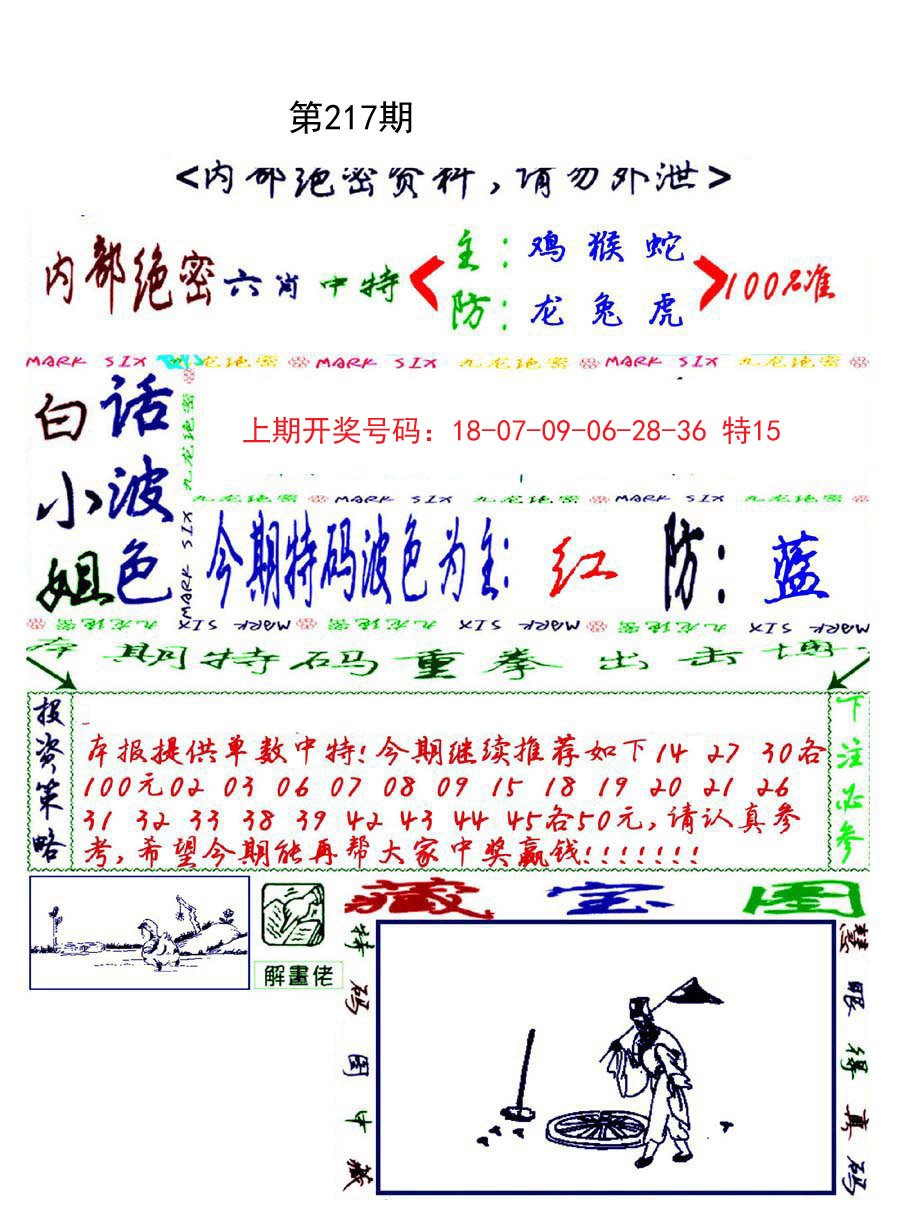 第217期
<内部绝密资料,请勿外泄>
内部绝密六肖中特
主:鸡猴蛇
防:龙兔虎
100%准
MARK SIX 九龙绝密 MARK SIX 九龙绝密 MARK SIX 九龙绝密
白小姐
话波色
九龙绝密
MARK SIX
上期开奖号码：18-07-09-06-28-36 特15
九龙绝密 MARK SIX 九龙绝密 MARK SIX 九龙绝密
今期特码波色为主:红 防:蓝
九龙绝密 MARK SIX 九龙绝密 MARK SIX 九龙绝密 MARK SIX
本期特码重拳出击博
投资策略
本报提供单数中特!今期继续推荐如下14 27 30各
100元02 03 06 07 08 09 15 18 19 20 21 26
31 32 33 38 39 42 43 44 45各50元,请认真参
考,希望今期能再帮大家中奖赢钱!!!!!!!
下注必参
解畫佬
藏宝图
特码图中藏
慧眼得真码